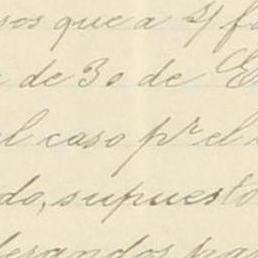 sos que a S/ fa
de 30 de E
el caso pr el
do, supuesto
derandos pa